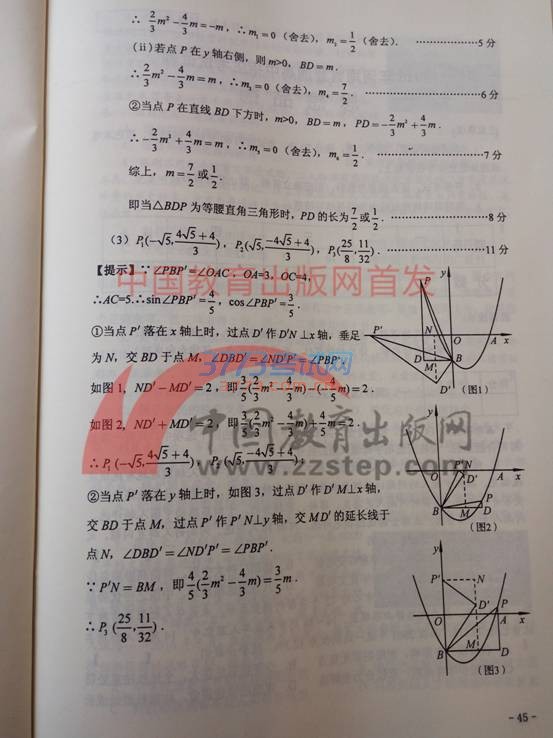 ∴ 2/3m²-4/3m=-m, ∴m₁=0 (舍去), m₂=1/2 (舍去). ····················5分
(ii)若点 P 在 y 轴右侧, 则 m>0, BD=m.
∴ 2/3m²-4/3m=m, ∴m₃=0 (舍去), m₄=7/2. ····················6分
②当点 P 在直线 BD 下方时, m>0, BD=m, PD=-2/3m²+4/3m.
∴ -2/3m²+4/3m=m, ∴m₅=0 (舍去), m₆=1/2. ····················7分
综上, m=7/2或1/2.
即当△BDP 为等腰直角三角形时, PD 的长为7/2或1/2. ····················8分
(3) P₁(-√5, (4√5+4)/3), P₂(√5, (-4√5+4)/3), P₃(25/8, 11/32). ····················11分
【提示】∵∠PBP'=∠OAC, OA=3, OC=4,
∴AC=5.∴sin∠PBP'=4/5, cos∠PBP'=3/5.
①当点 P' 落在 x 轴上时, 过点 D' 作 D'N⊥x 轴, 垂足
为 N, 交 BD 于点 M, ∠DBD'=∠ND'P'=∠PBP'.
如图 1, ND'-MD'=2, 即3/5(2/3m²-4/3m)-(-4/5m)=2.
如图 2, ND'+MD'=2, 即3/5(2/3m²-4/3m)+4/5m=2.
∴P₁(-√5, (4√5+4)/3), P₂(√5, (-4√5+4)/3).
②当点 P' 落在 y 轴上时, 如图 3, 过点 D' 作 D'M⊥x 轴,
交 BD 于点 M, 过点 P' 作 P'N⊥y 轴, 交 MD' 的延长线于
点 N, ∠DBD'=∠ND'P'=∠PBP'.
∵P'N=BM, 即4/5(2/3m²-4/3m)=3/5m.
∴P₃(25/8, 11/32).
y
P
P' N O A x
D M B
D'
(图1)
y
O P' N A x
D'
P
B M D
(图2)
y
P' N
D' P
O A x
B M D
(图3)
-45-
中国教育出版网首发
3773考试网
中国教育出版网
www.zzstep.com